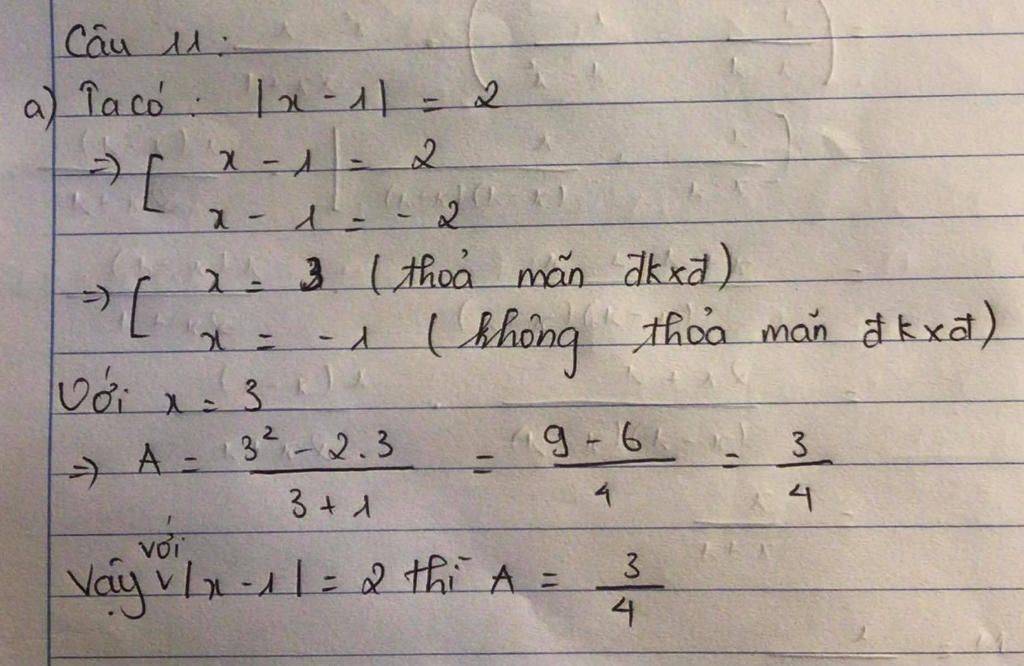 Câu 11:
a) Ta có: |x - 1| = 2
=> [ x - 1 = 2
x - 1 = - 2
=> [ x = 3 (thoả mãn đkxđ)
x = - 1 (không thoả mãn đkxđ)
Với x = 3
=> A = (3² - 2.3)/(3 + 1) = (9 - 6)/4 = 3/4
Vậy với |x - 1| = 2 thì A = 3/4